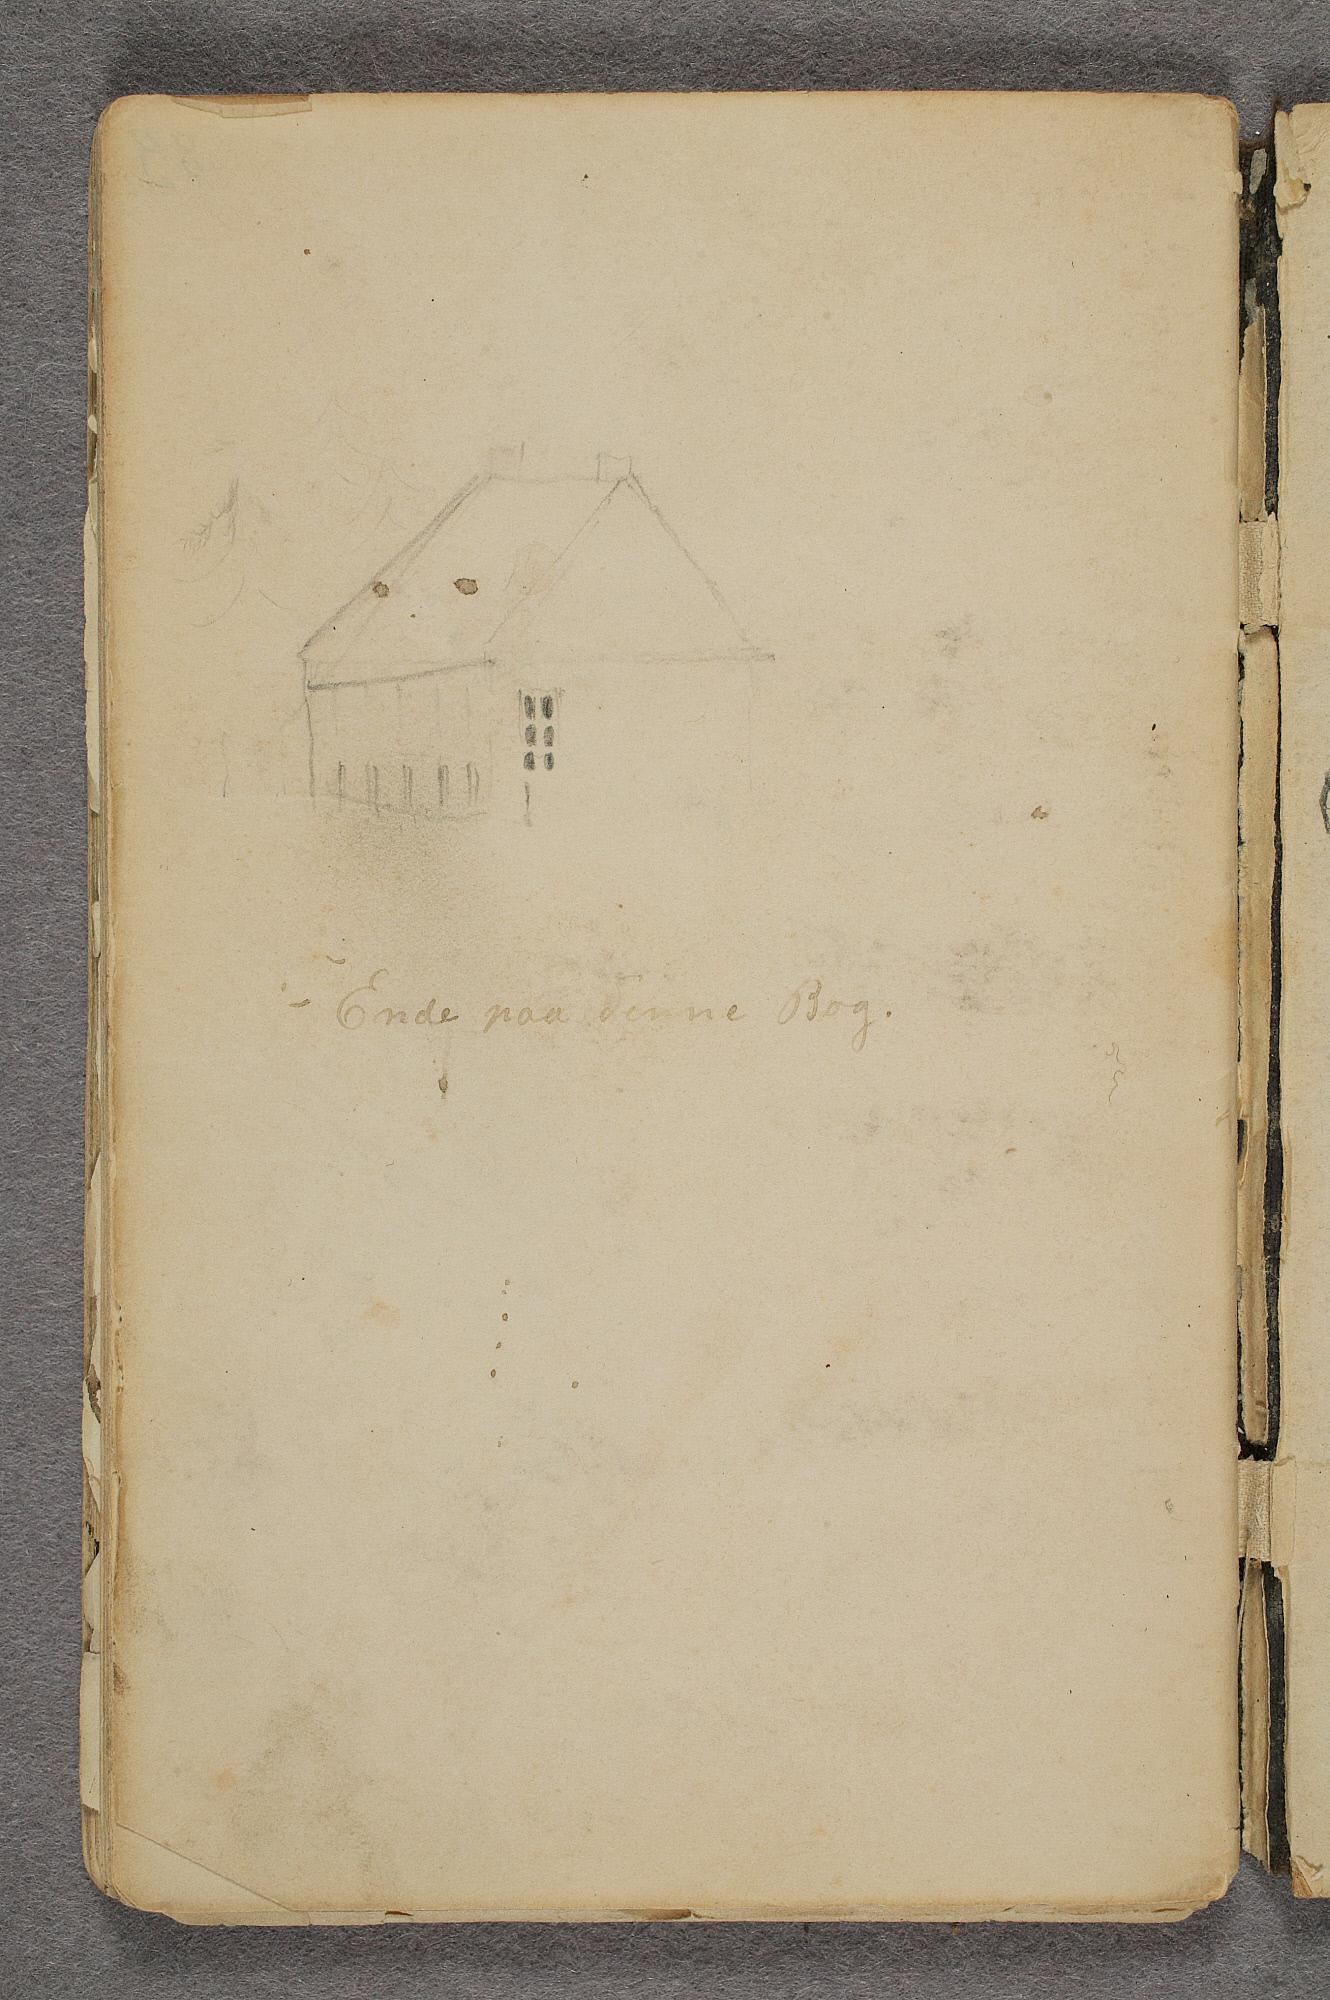 - Ende paa denne Bog.